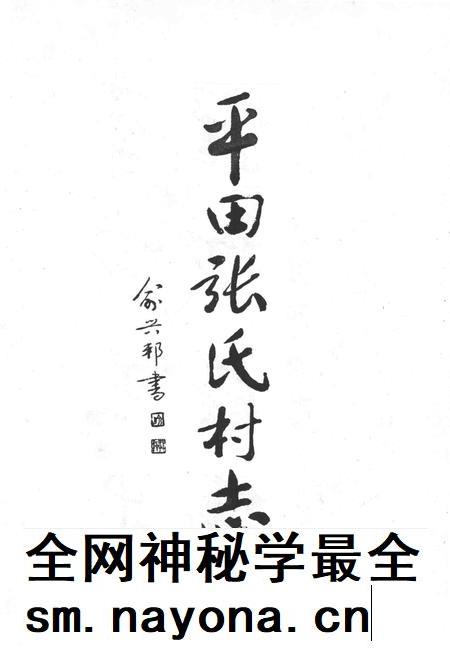 平田张氏村志
俞兴邦书
全网神秘学最全
sm.nayona.cn